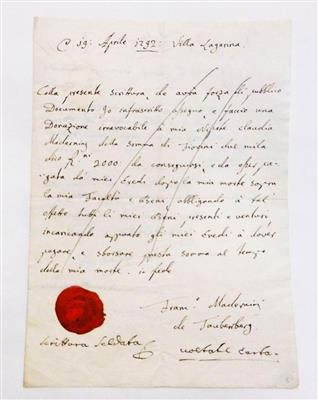 19: Aprile 1792 Villa Lagarina.
Colla presente scrittura da aver forza di pubblico
Documento Io infrascritto assegno, e faccio una
Donazione irrevocabile a mia Nipote Claudia
Madernini della somma di Fiorini due mila
dico 2000: da conseguirsi, e da esser pa-
gata da' miei Eredi doppo la mia morte sopra
la mia Facoltà e Beni obligando à tal
effetto tutti li miei Beni presenti e venturi
incaricando appunto gli miei Eredi à dover
pagare, e sborsare questa somma al tempo
della mia morte. in fede
Fran.co
de Taubenberg
Scrittura Saldata
voltate carta.